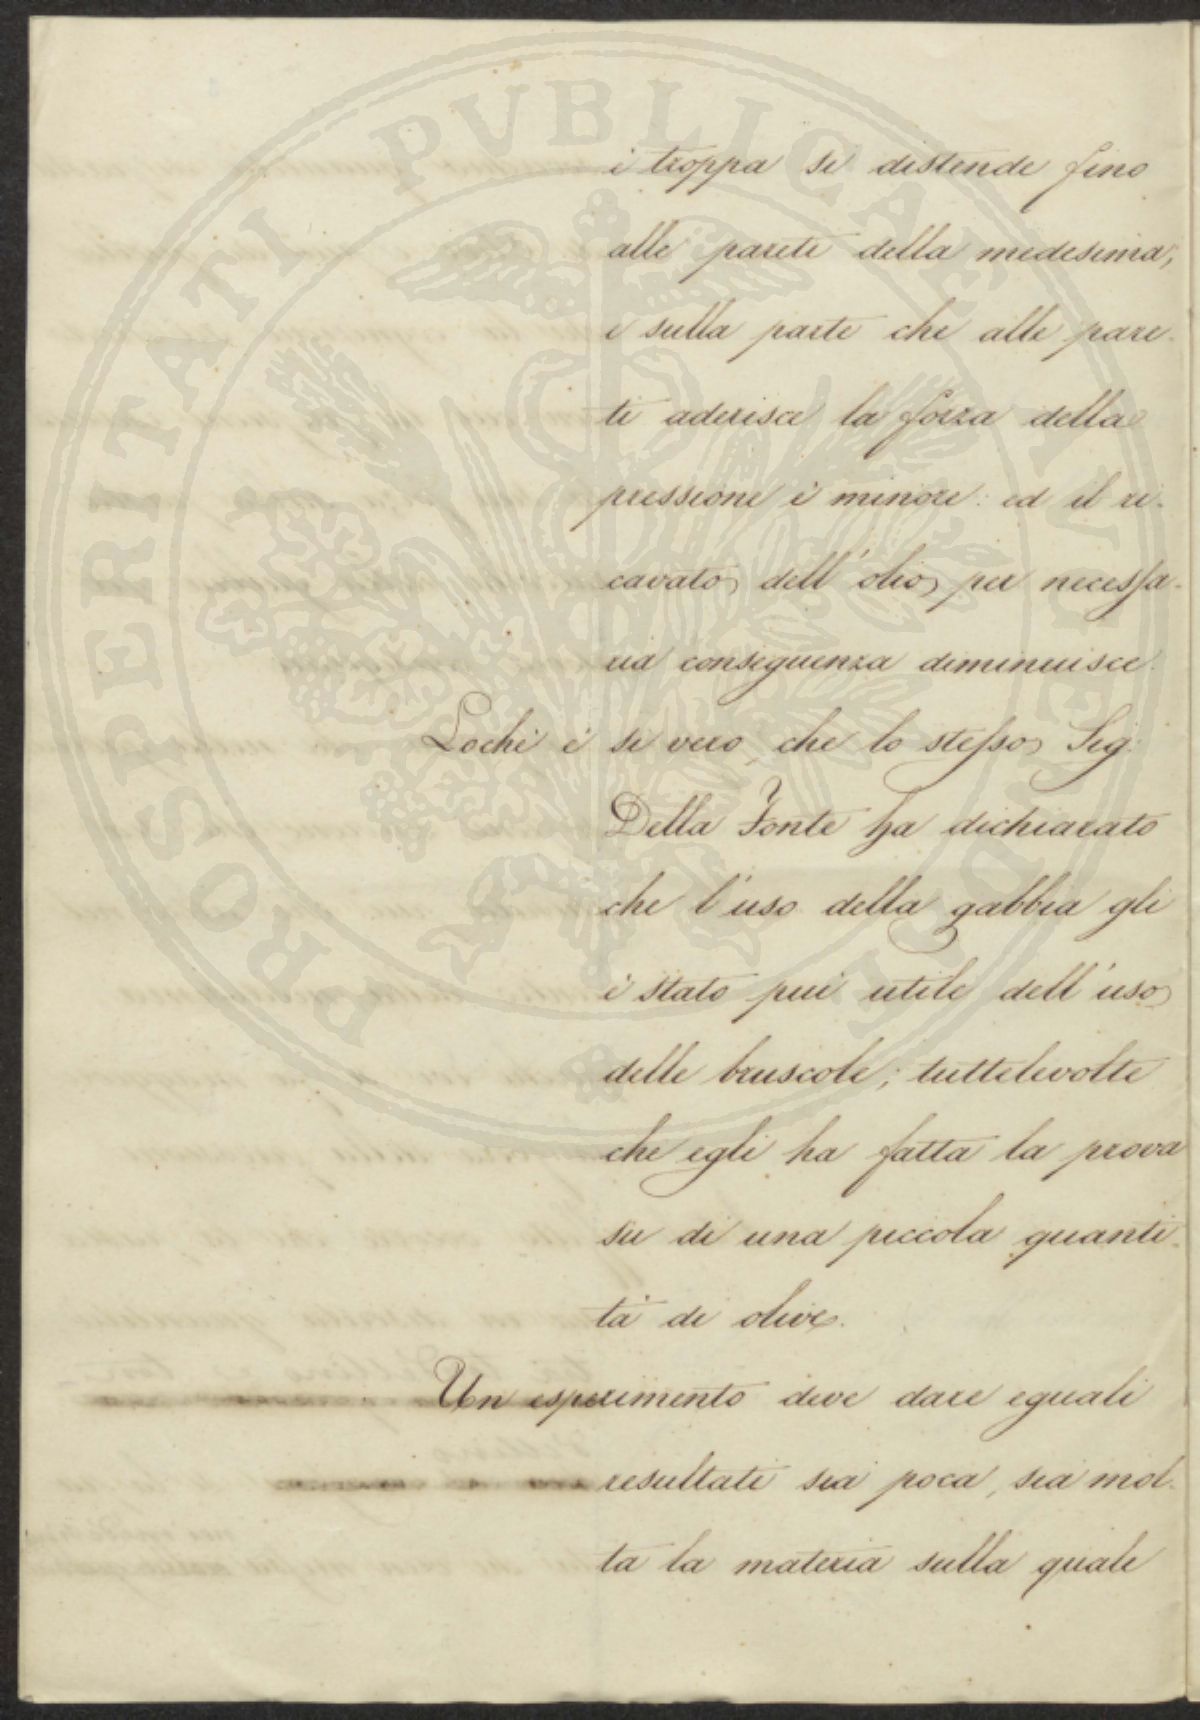 è troppa si distende fino
alle pareti della medesima;
e sulla parte che alle pare-
ti aderisce la forza della
pressione è minore: ed il ri-
cavato dell'olio per necessa-
ria conseguenza diminuisce.
Lochè è si vero, che lo stesso Sig.
Della Fonte ha dichiarato
che l'uso della gabbia gli
è stato più utile dell'uso
delle bruscole; tuttelevolte
che egli ha fatta la prova
su di una piccola quanti-
tà di olive.
Un esperimento deve dare eguali
resultati sia poca, sia mol-
ta la materia sulla quale
PROSPERITATI PUBLICAE